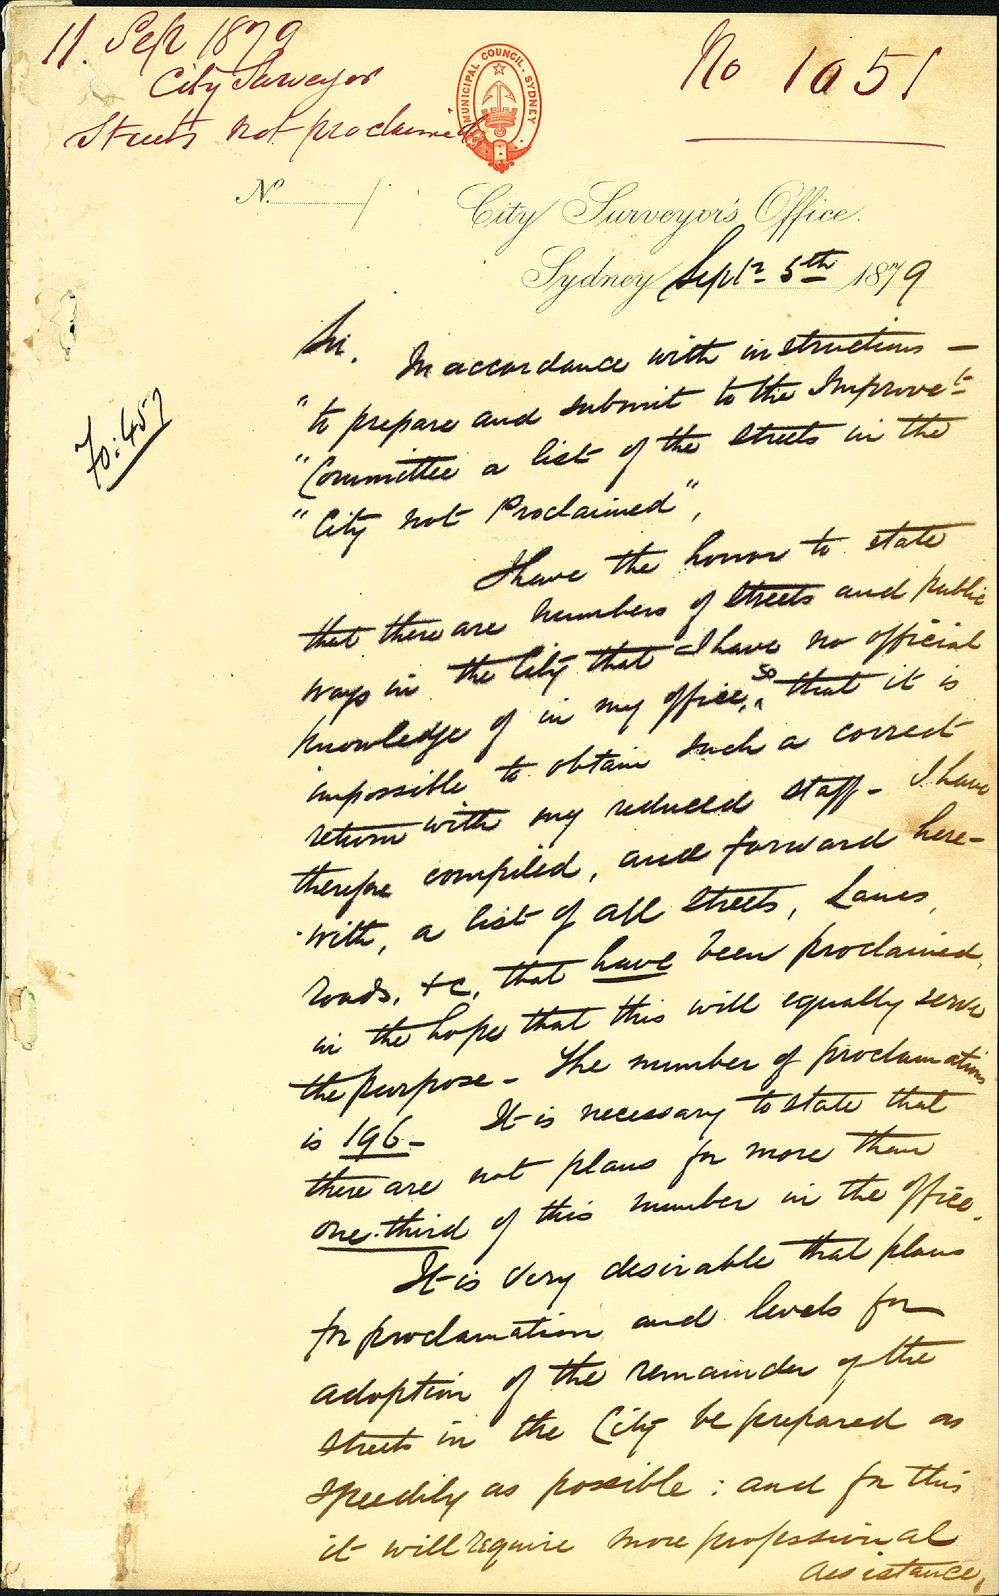 11. Sep 1879
City Surveyor
Streets not proclaimed
No 1051
MUNICIPAL COUNCIL. SYDNEY
No.
City Surveyor's Office.
Sydney Septr. 5th 1879
Fo: 457
Sir,
In accordance with instructions —
"to prepare and submit to the Improvets.
"Committee a list of the streets in the
"City not Proclaimed",
I have the honor to state
that there are numbers of streets and public
ways in the City that I have no official
knowledge of in my office, so that it is
impossible to obtain such a correct
return with my reduced staff - I have
therefore compiled, and forward here-
with, a list of all Streets, Lanes,
roads, &c, that have been proclaimed,
in the hope that this will equally serve
the purpose - The number of proclamations
is 196 - It is necessary to state that
there are not plans for more than
one-third of this number in the office.
It is very desirable that plans
for proclamation and levels for
adoption of the remainder of the
streets in the City be prepared as
speedily as possible : and for this
it will require more professional
assistance,